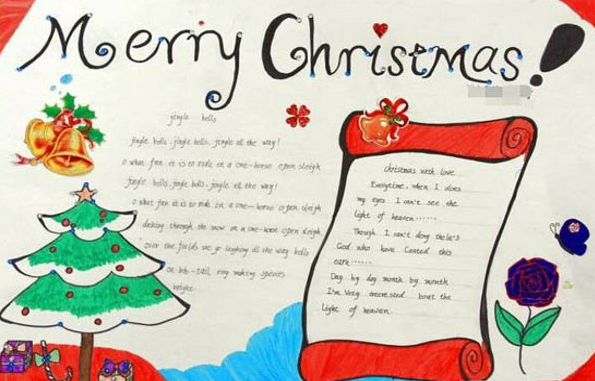 Merry Christmas!
jingle bells
jingle bells, jingle bells, jingle all the way!
o what fun it is to ride in a one-horse open sleigh
jingle bells, jingle bells, jingle all the way!
o what fun it is to ride in a one-horse open sleigh
dashing through the snow in a one-horse open sleigh
over the fields we go laughing all the way bells
on bob-tail ring making spirits
bright.
Christmas with love
Everytime, when I
my eyes I can't see the
light of heaven......
Though I can't deny
God who have this
Day by day month by month
I'm Very the
light of heaven.